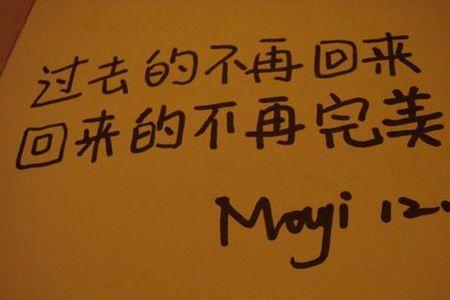 过去的不再回来
回来的不再完美
Mayi 12.